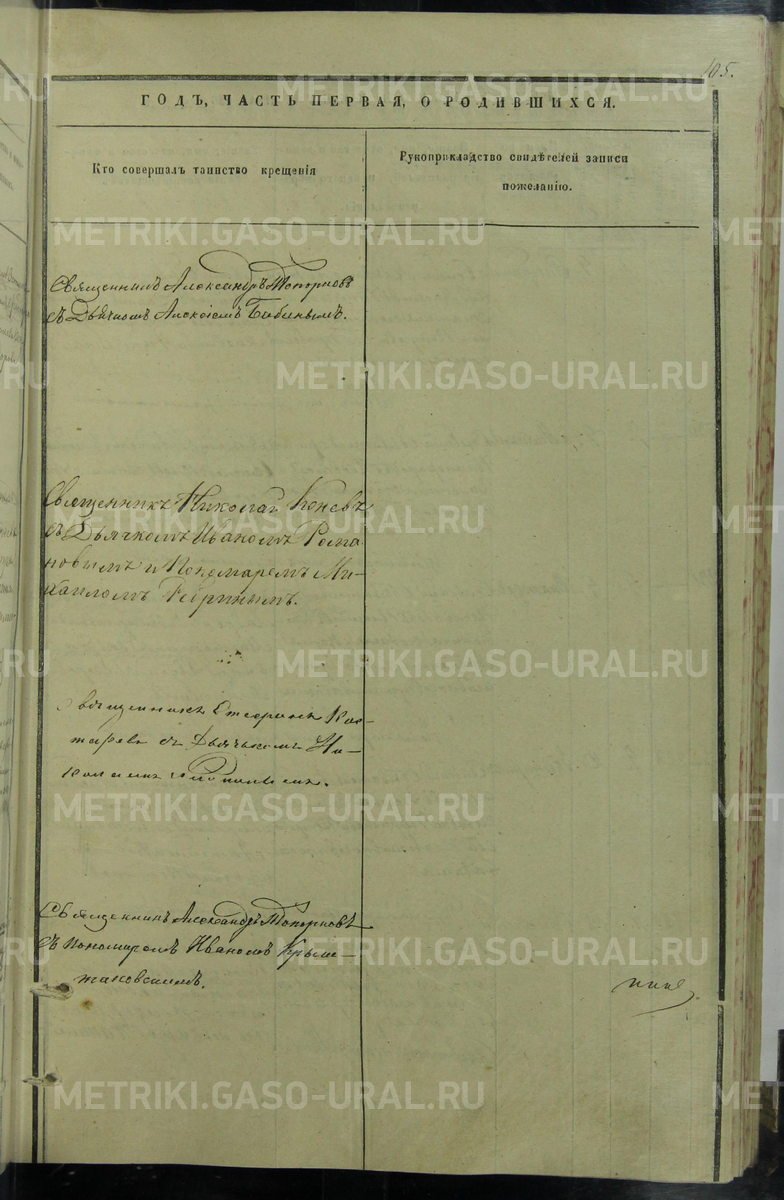 105.
ГОДЪ, ЧАСТЬ ПЕРВАЯ, О РОДИВШИХСЯ.
Кто совершалъ таинство крещенія
Рукоприкладство свидѣтелей записи
пожеланію.
Священникъ Александръ Топорковъ
съ Дьячкомъ Алексѣемъ Бабинымъ.
Священникъ Николай Коневъ
съ Дьячкомъ Иваномъ Рома
новымъ и Пономаремъ Ми-
хаиломъ
Священникъ Стефанъ Кос-
таревъ съ Дьячькомъ Ни-
колаемъ
Священникъ Александръ Топорковъ
съ Пономаремъ Иваномъ Крыж-
жановскимъ.
METRIKI.GASO-URAL.RU